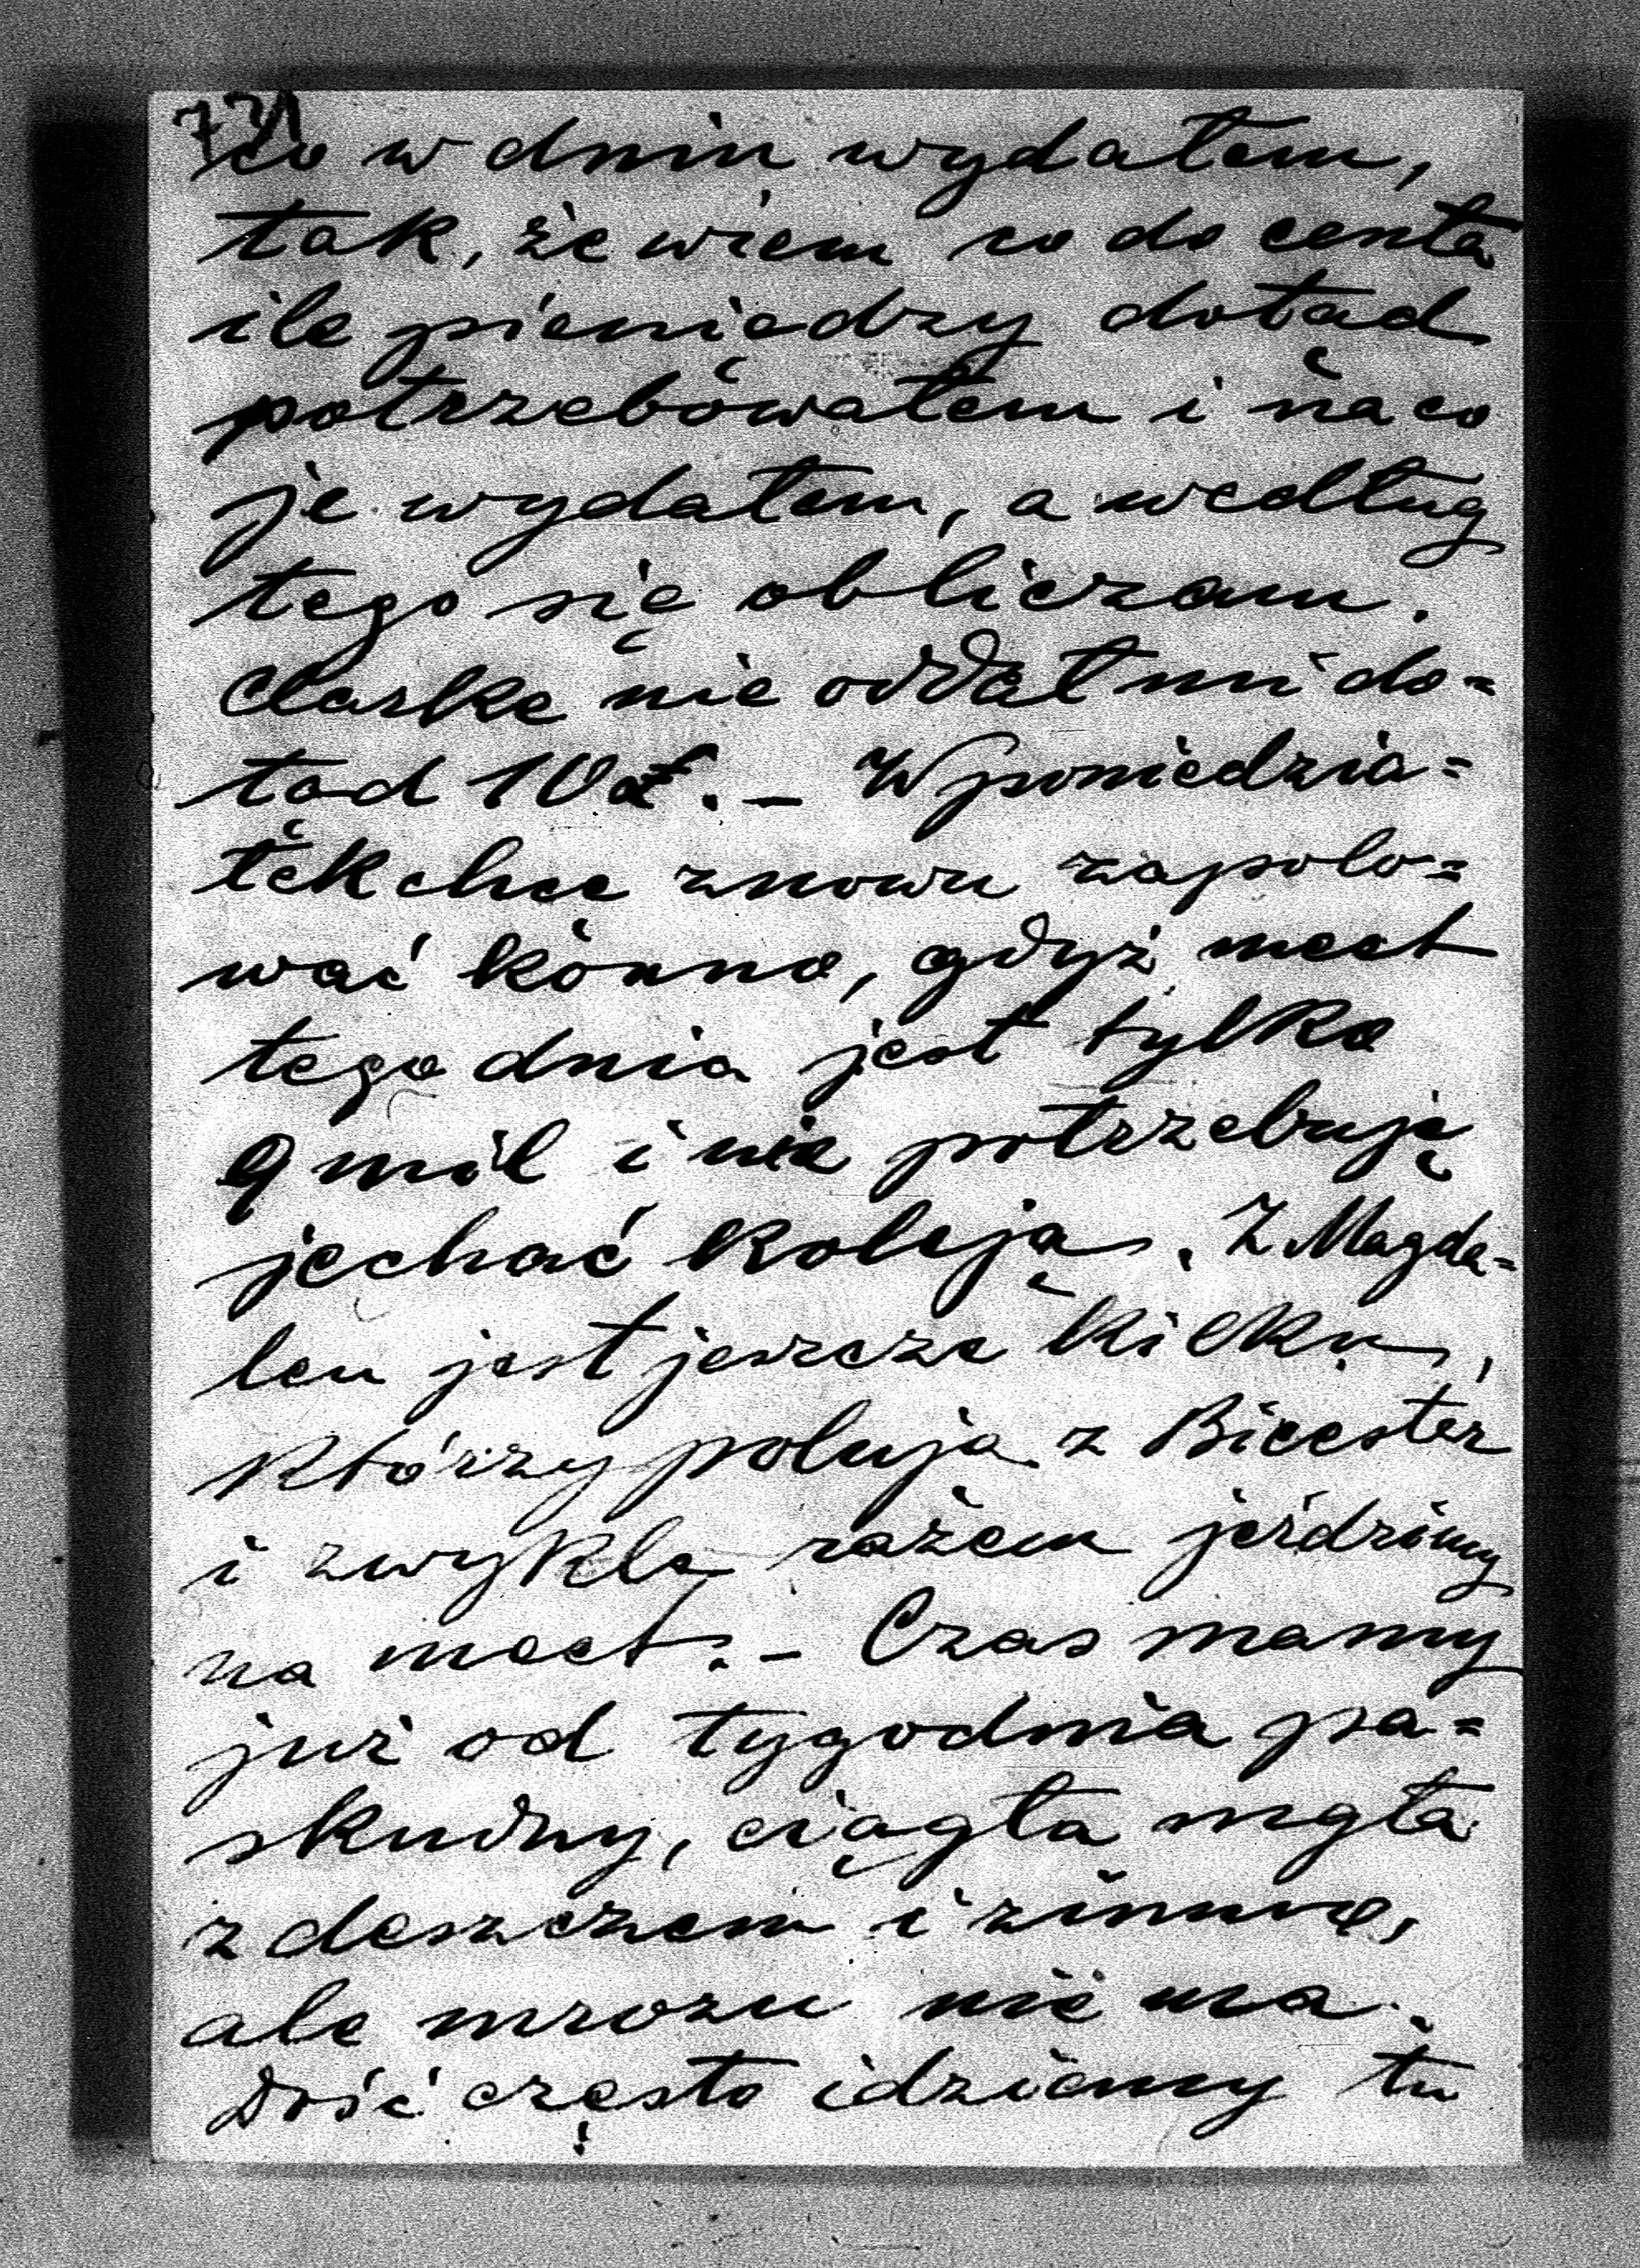 731
co w dniu wydałem,
tak, że wiem co do centa
ile pieniędzy dotąd
potrzebowałem i na co
je wydałem, a według
tego się obliczam.
Clarke nie oddał mi do=
tąd 10 £. — W poniedzia=
łek chce znowu zapolo=
wać konno, gdyż meet
tego dnia jest tylko
9 mil i nie potrzebuję
jechać koleją. Z Magda=
len jest jeszcze kilku,
którzy polują z Bicester
i zwykle razem jeździmy
na meet. — Czas mamy
już od tygodnia pa=
skudny, ciągła mgła
z deszczem i zimno,
ale mrozu nie ma.
Dość często idziemy tu